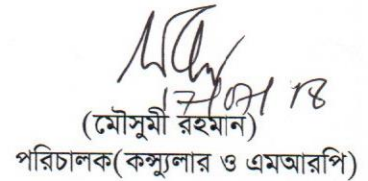 17/07/18
(মৌসুমী রহমান)
পরিচালক(কন্স্যুলার ও এমআরপি)